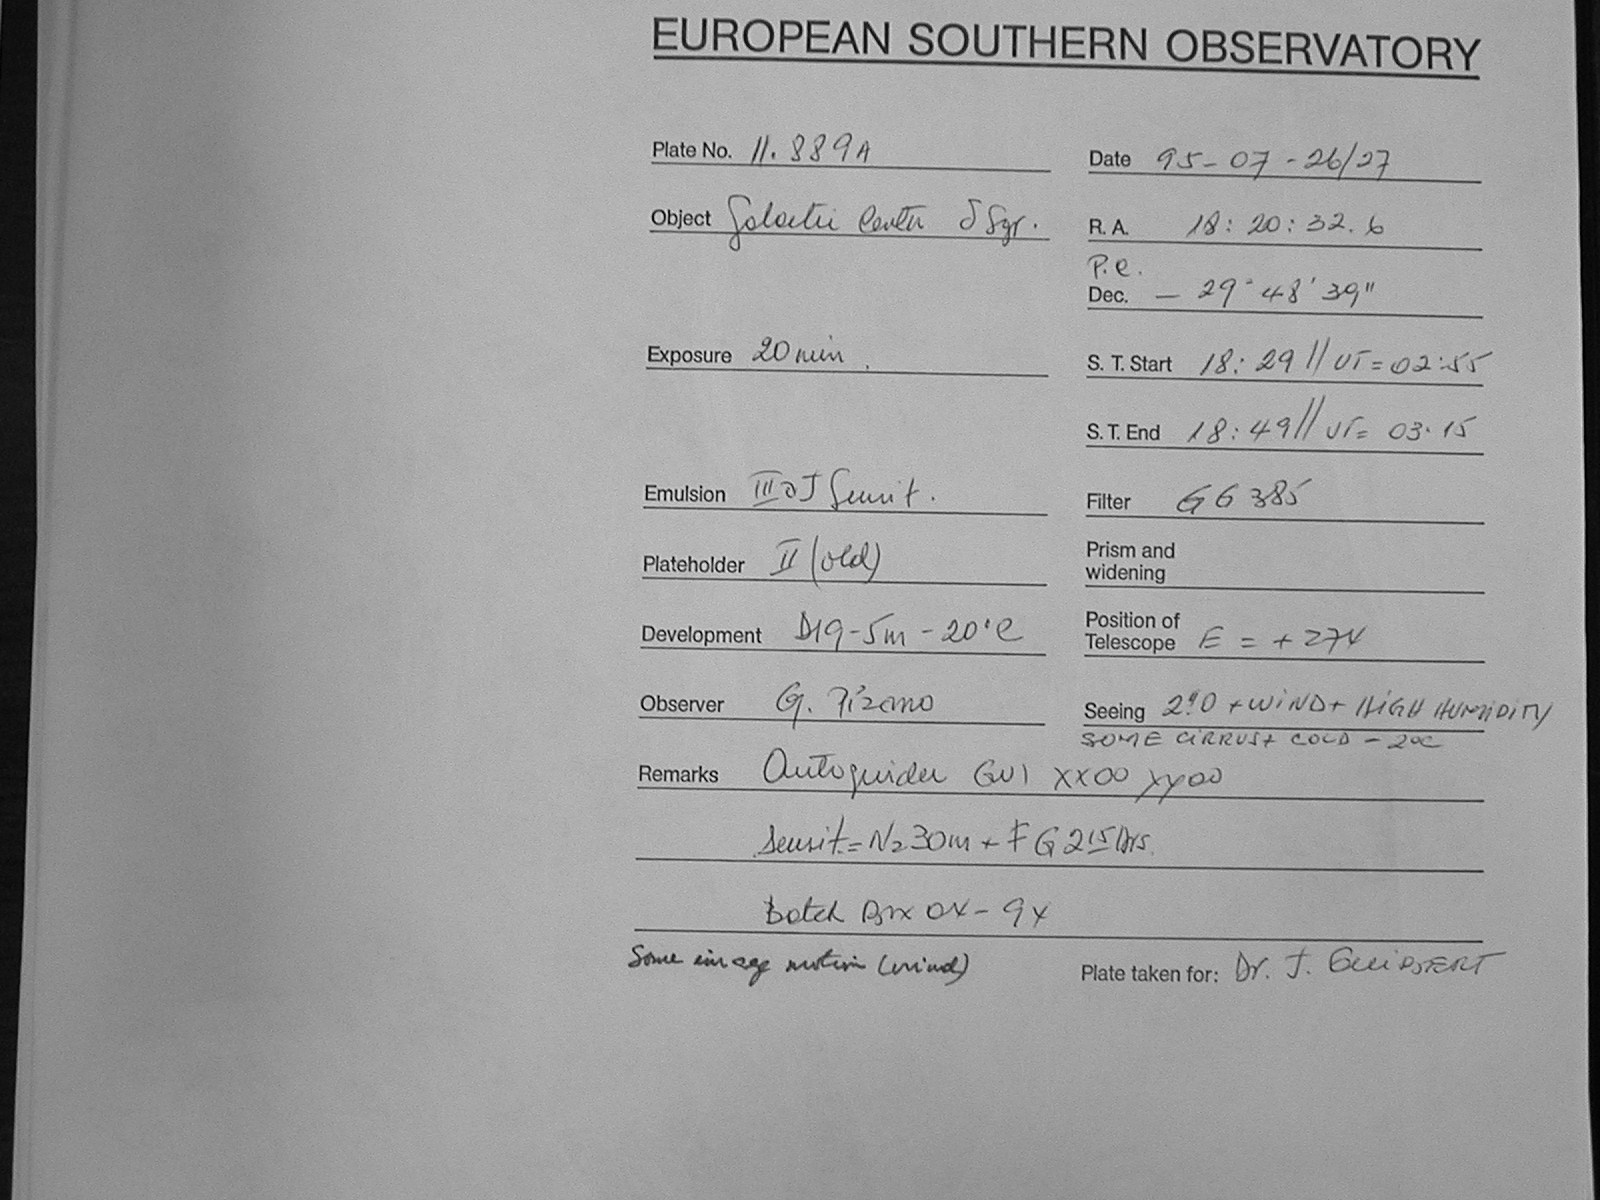 EUROPEAN SOUTHERN OBSERVATORY
Plate No. 11.889A
Date 95-07-26/27
Object Galactic Center δ Sgr.
R. A. 18: 20: 32.6
P.e.
Dec. - 29° 48' 39"
Exposure 20 min.
S. T. Start 18: 29 // UT = 02:55
S. T. End 18: 49 // UT= 03.15
Emulsion IIIaJ Sensit.
Filter GG385
Plateholder II (old)
Prism and
widening
Development D19-5m-20°C
Position of
Telescope E = +274
Observer G. Pizarro
Seeing 2".0 + WIND + HIGH HUMIDITY
SOME CIRRUS + COLD - 2°C
Remarks Autoguider GV1 XX00 YY00
Sensit = N2 30m + FG 2 15 hrs.
Batch
Some image motion (wind)
Plate taken for: Dr. J.